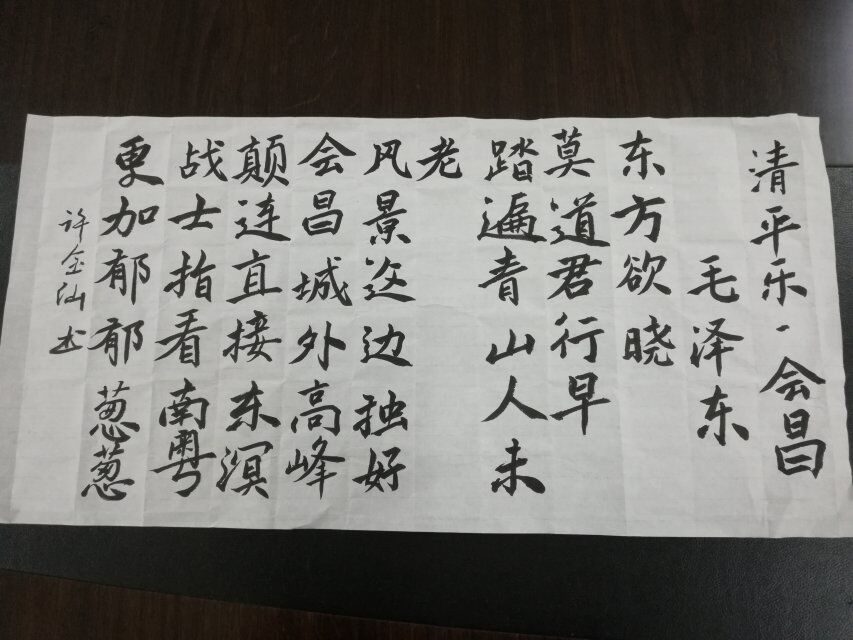 清平乐·会昌
毛泽东
东方欲晓
莫道君行早
踏遍青山人未
老
风景这边独好
会昌城外高峰
颠连直接东溟
战士指看南粤
更加郁郁葱葱
许金仙书